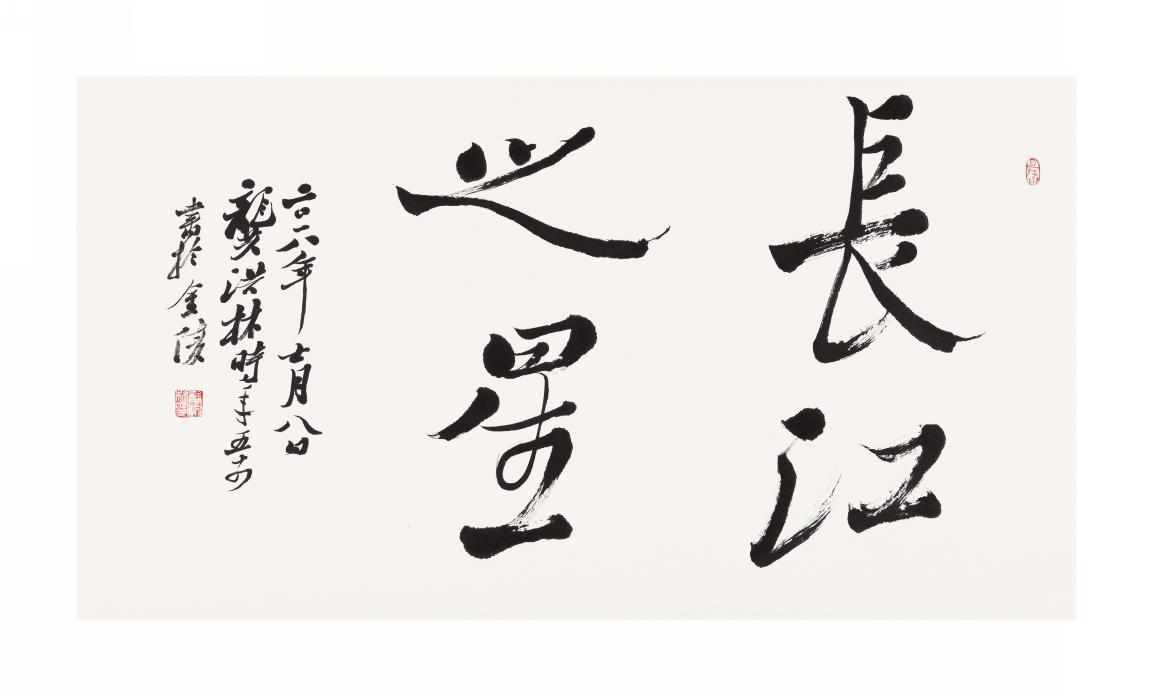 長江
之星
二〇一八年十一月八日
龔洪林時年五十四
書於金陵